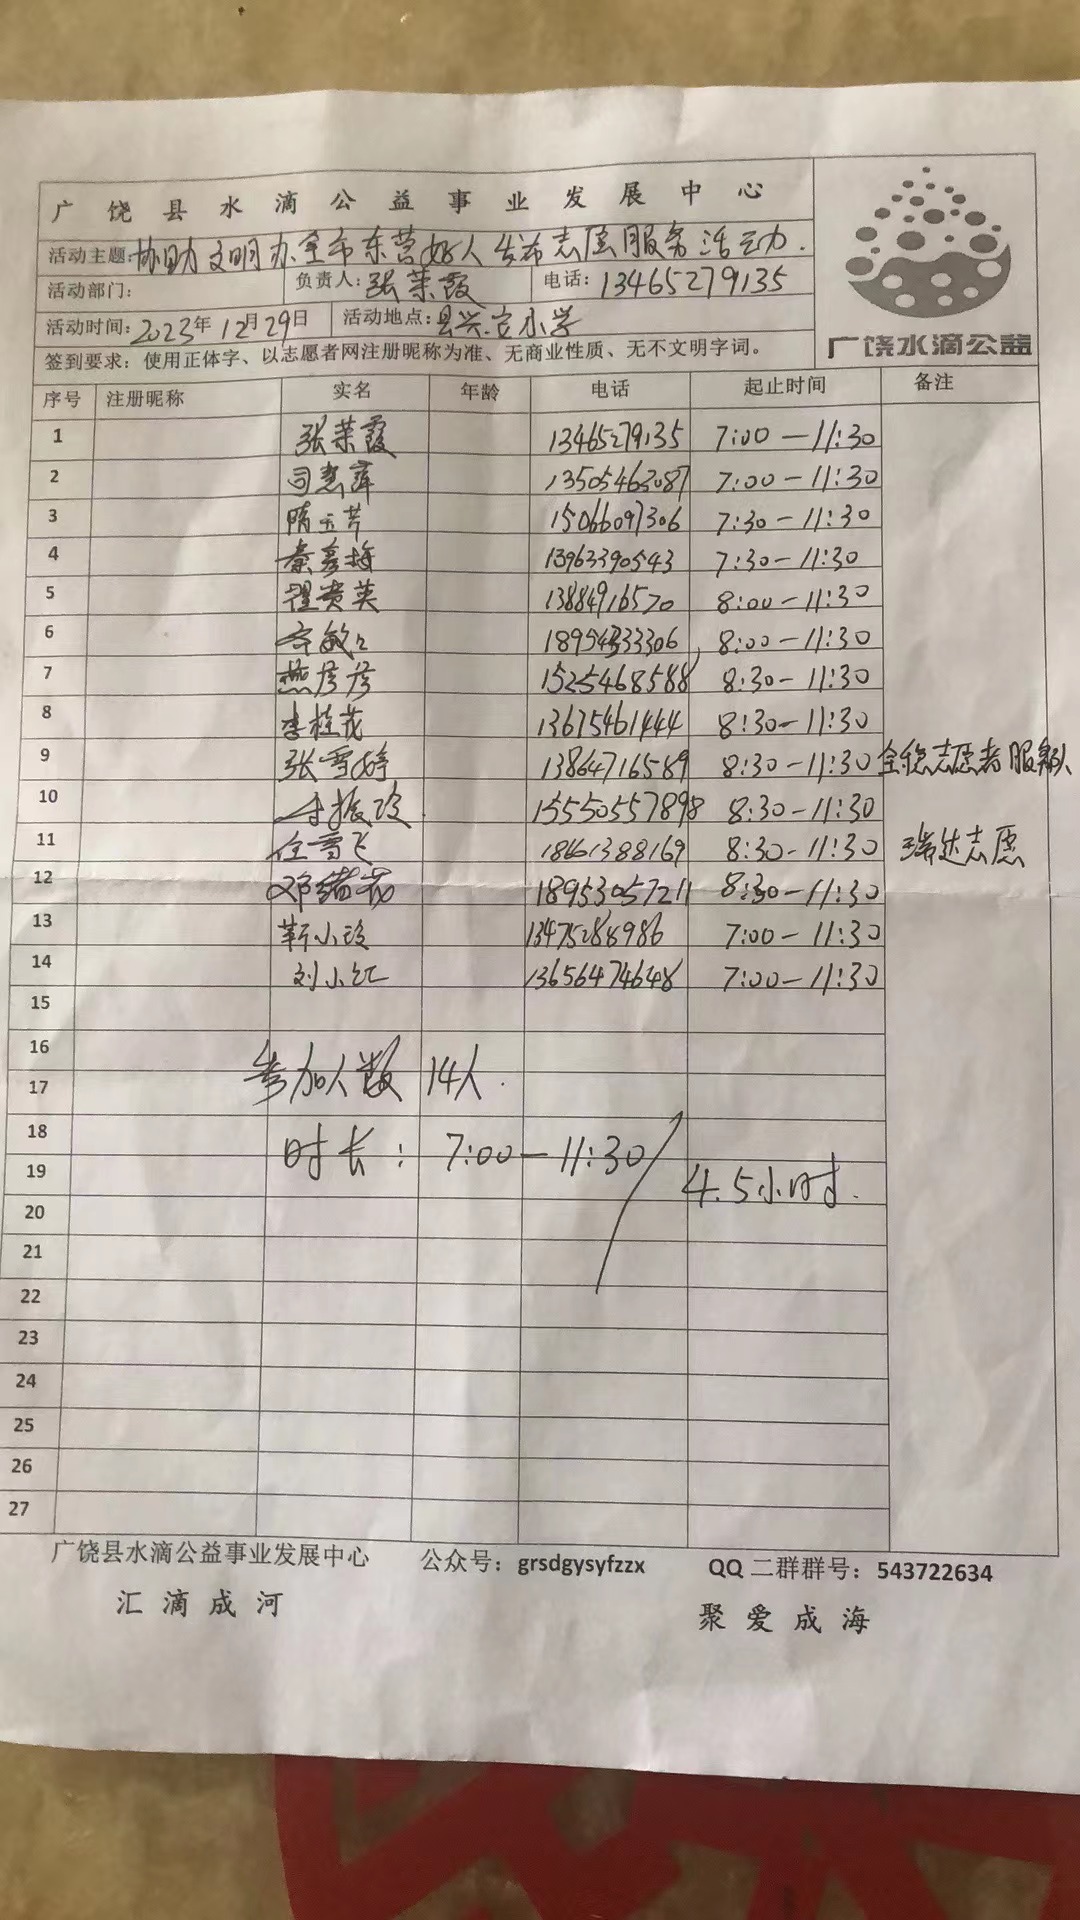 广饶县水滴公益事业发展中心
活动主题:协助文明办全市东营好人发布志愿服务活动.
活动部门: 负责人:张荣霞 电话:13465279135
活动时间:2023年12月29日 活动地点:县兴安小学
广饶水滴公益
签到要求:使用正体字、以志愿者网注册昵称为准、无商业性质、无不文明字词。
序号 注册昵称 实名 年龄 电话 起止时间 备注
1 张荣霞 13465279135 7:00-11:30
2 司惠萍 13505463087 7:00-11:30
3 隋玉芹 15066097306 7:30-11:30
4 秦彦梅 13963390543 7:30-11:30
5 翟贵英 13884916570 8:00-11:30
6 18954333306 8:00-11:30
7 燕彦彦 15254468588 8:30-11:30
8 李桂花 13675461444 8:30-11:30
9 张雪婷 13864716589 8:30-11:30 志愿者服务队
10 15550557898 8:30-11:30
11 任雪飞 18661388169 8:30-11:30 瑞达志愿
12 邓绪花 18953057211 8:30-11:30
13 靳小玲 13475284986 7:00-11:30
14 刘小红 13656474648 7:00-11:30
15
16
参加人数 14人.
17
18
时长: 7:00-11:30
19
4.5小时.
20
21
22
23
24
25
26
27
广饶县水滴公益事业发展中心 公众号:grsdgysyfzzx QQ二群群号:543722634
汇滴成河 聚爱成海